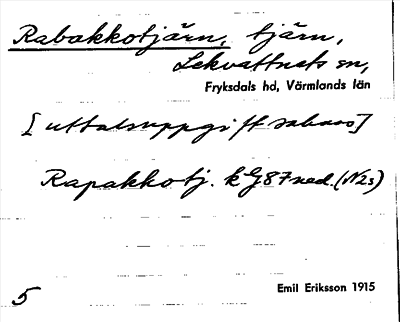 Rabakkotjärn, tjärn,
Lekvattnets sn,
Fryksdals hd, Värmlands län
[uttalsuppgift saknas]
Rapakkotj. k G87 ned. (N2s)
5
Emil Eriksson 1915